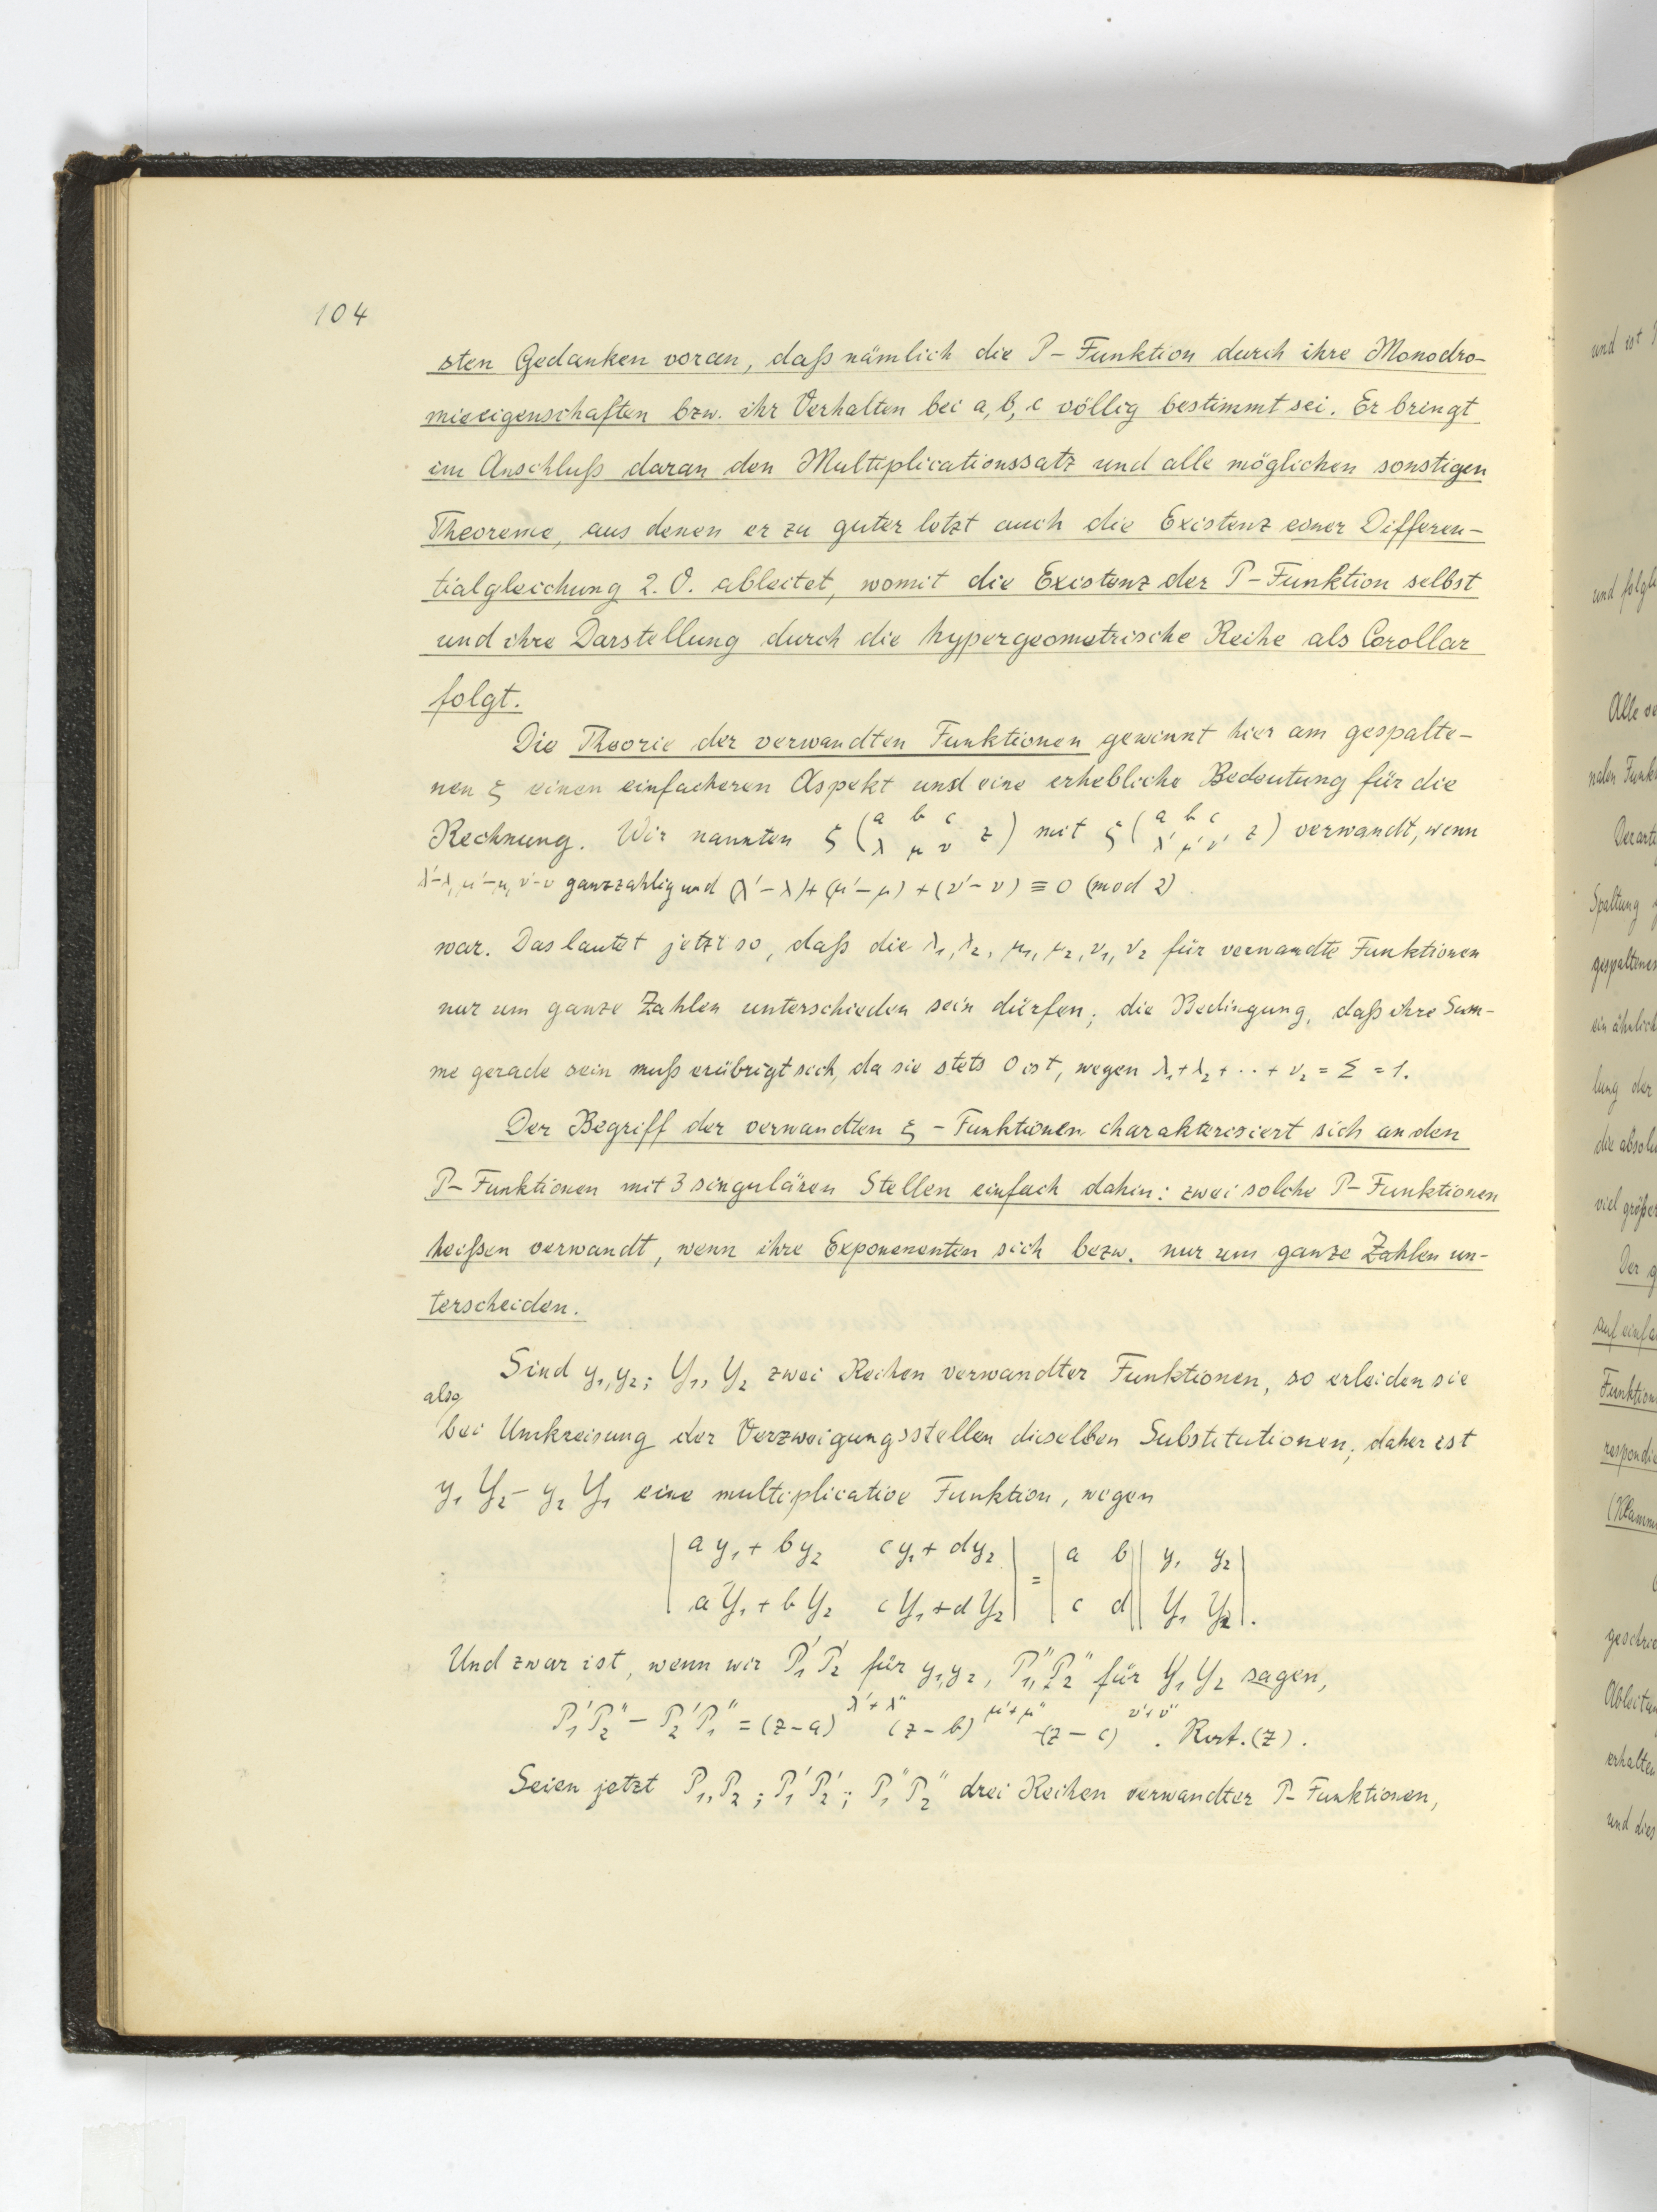 104
sten Gedanken voran, daß nämlich die P-Funktion durch ihre Monodro-
mieeigenschaften bzw. ihr Verhalten bei a, b, c völlig bestimmt sei. Er bringt
im Anschluß daran den Multiplicationssatz und alle möglichen sonstigen
Theoreme, aus denen er zu guter letzt auch die Existenz einer Differen-
tialgleichung 2. O. ableitet, womit die Existenz der P-Funktion selbst
und ihre Darstellung durch die hypergeometrische Reihe als Corollar
folgt.
Die Theorie der verwandten Funktionen gewinnt hier am gespalte-
nen ξ einen einfacheren Aspekt und eine erhebliche Bedeutung für die
Rechnung. Wir nannten ξ (a b c / λ μ ν z) mit ξ (a b c / λ' μ' ν' z) verwandt, wenn
λ'-λ, μ'-μ, ν'-ν ganzzahlig und (λ'-λ)+(μ'-μ)+(ν'-ν) ≡ 0 (mod 2)
war. Das lautet jetzt so, daß die λ₁, λ₂, μ₁, μ₂, ν₁, ν₂ für verwandte Funktionen
nur um ganze Zahlen unterschieden sein dürfen; die Bedingung, daß ihre Sum-
me gerade sein muß erübrigt sich, da sie stets 0 ist, wegen λ₁+λ₂+··+ν₂ = Σ = 1.
Der Begriff der verwandten ξ-Funktionen charakterisiert sich an den
P-Funktionen mit 3 singulären Stellen einfach dahin: zwei solche P-Funktionen
heißen verwandt, wenn ihre Exponenenten sich bezw. nur um ganze Zahlen un-
terscheiden.
Sind y₁, y₂; Y₁, Y₂ zwei Reihen verwandter Funktionen, so erleiden sie
also
bei Umkreisung der Verzweigungsstellen dieselben Substitutionen; daher ist
y₁ Y₂ - y₂ Y₁ eine multiplicative Funktion, wegen
| a y₁ + b y₂ c y₁ + d y₂ | = | a b | | y₁ y₂ |
| a Y₁ + b Y₂ c Y₁ + d Y₂ | | c d | | Y₁ Y₂ |.
Und zwar ist, wenn wir P₁' P₂' für y₁, y₂, P₁'', P₂'' für Y₁ Y₂ sagen,
P₁' P₂'' - P₂' P₁'' = (z-a)^{λ'+λ''} (z-b)^{μ'+μ''} (z-c)^{ν'+ν''} .
Seien jetzt P₁, P₂; P₁' P₂'; P₁'' P₂'' drei Reihen verwandter P-Funktionen,
und ist
Alle
Spaltung
lung der
Der
geschrie
erhalten
und dies